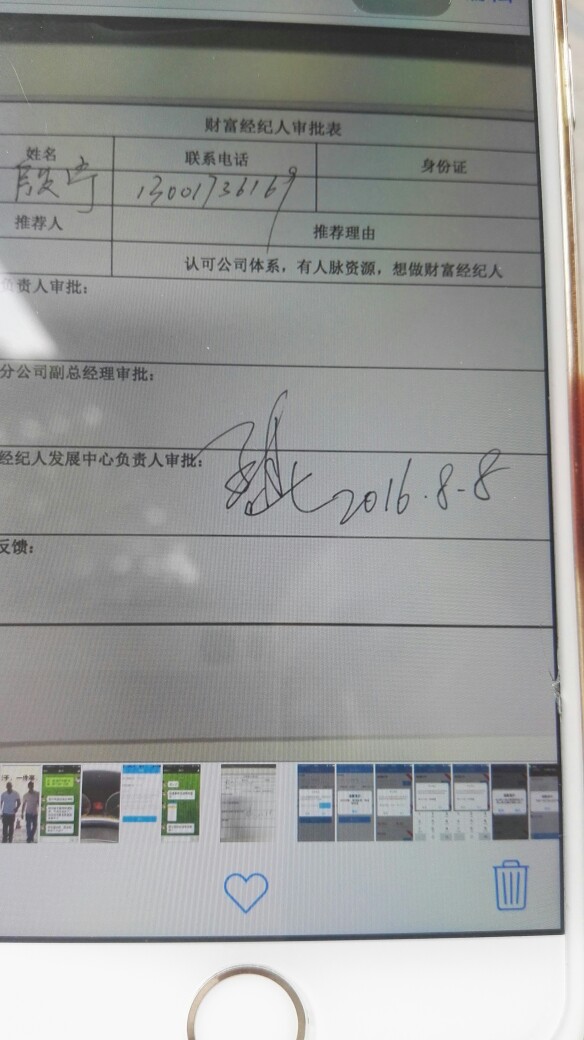 财富经纪人审批表
姓名 联系电话 身份证
段宁 13001736169
推荐人 推荐理由
认可公司体系，有人脉资源，想做财富经纪人
负责人审批：
分公司副总经理审批：
经纪人发展中心负责人审批：
2016.8-8
反馈：